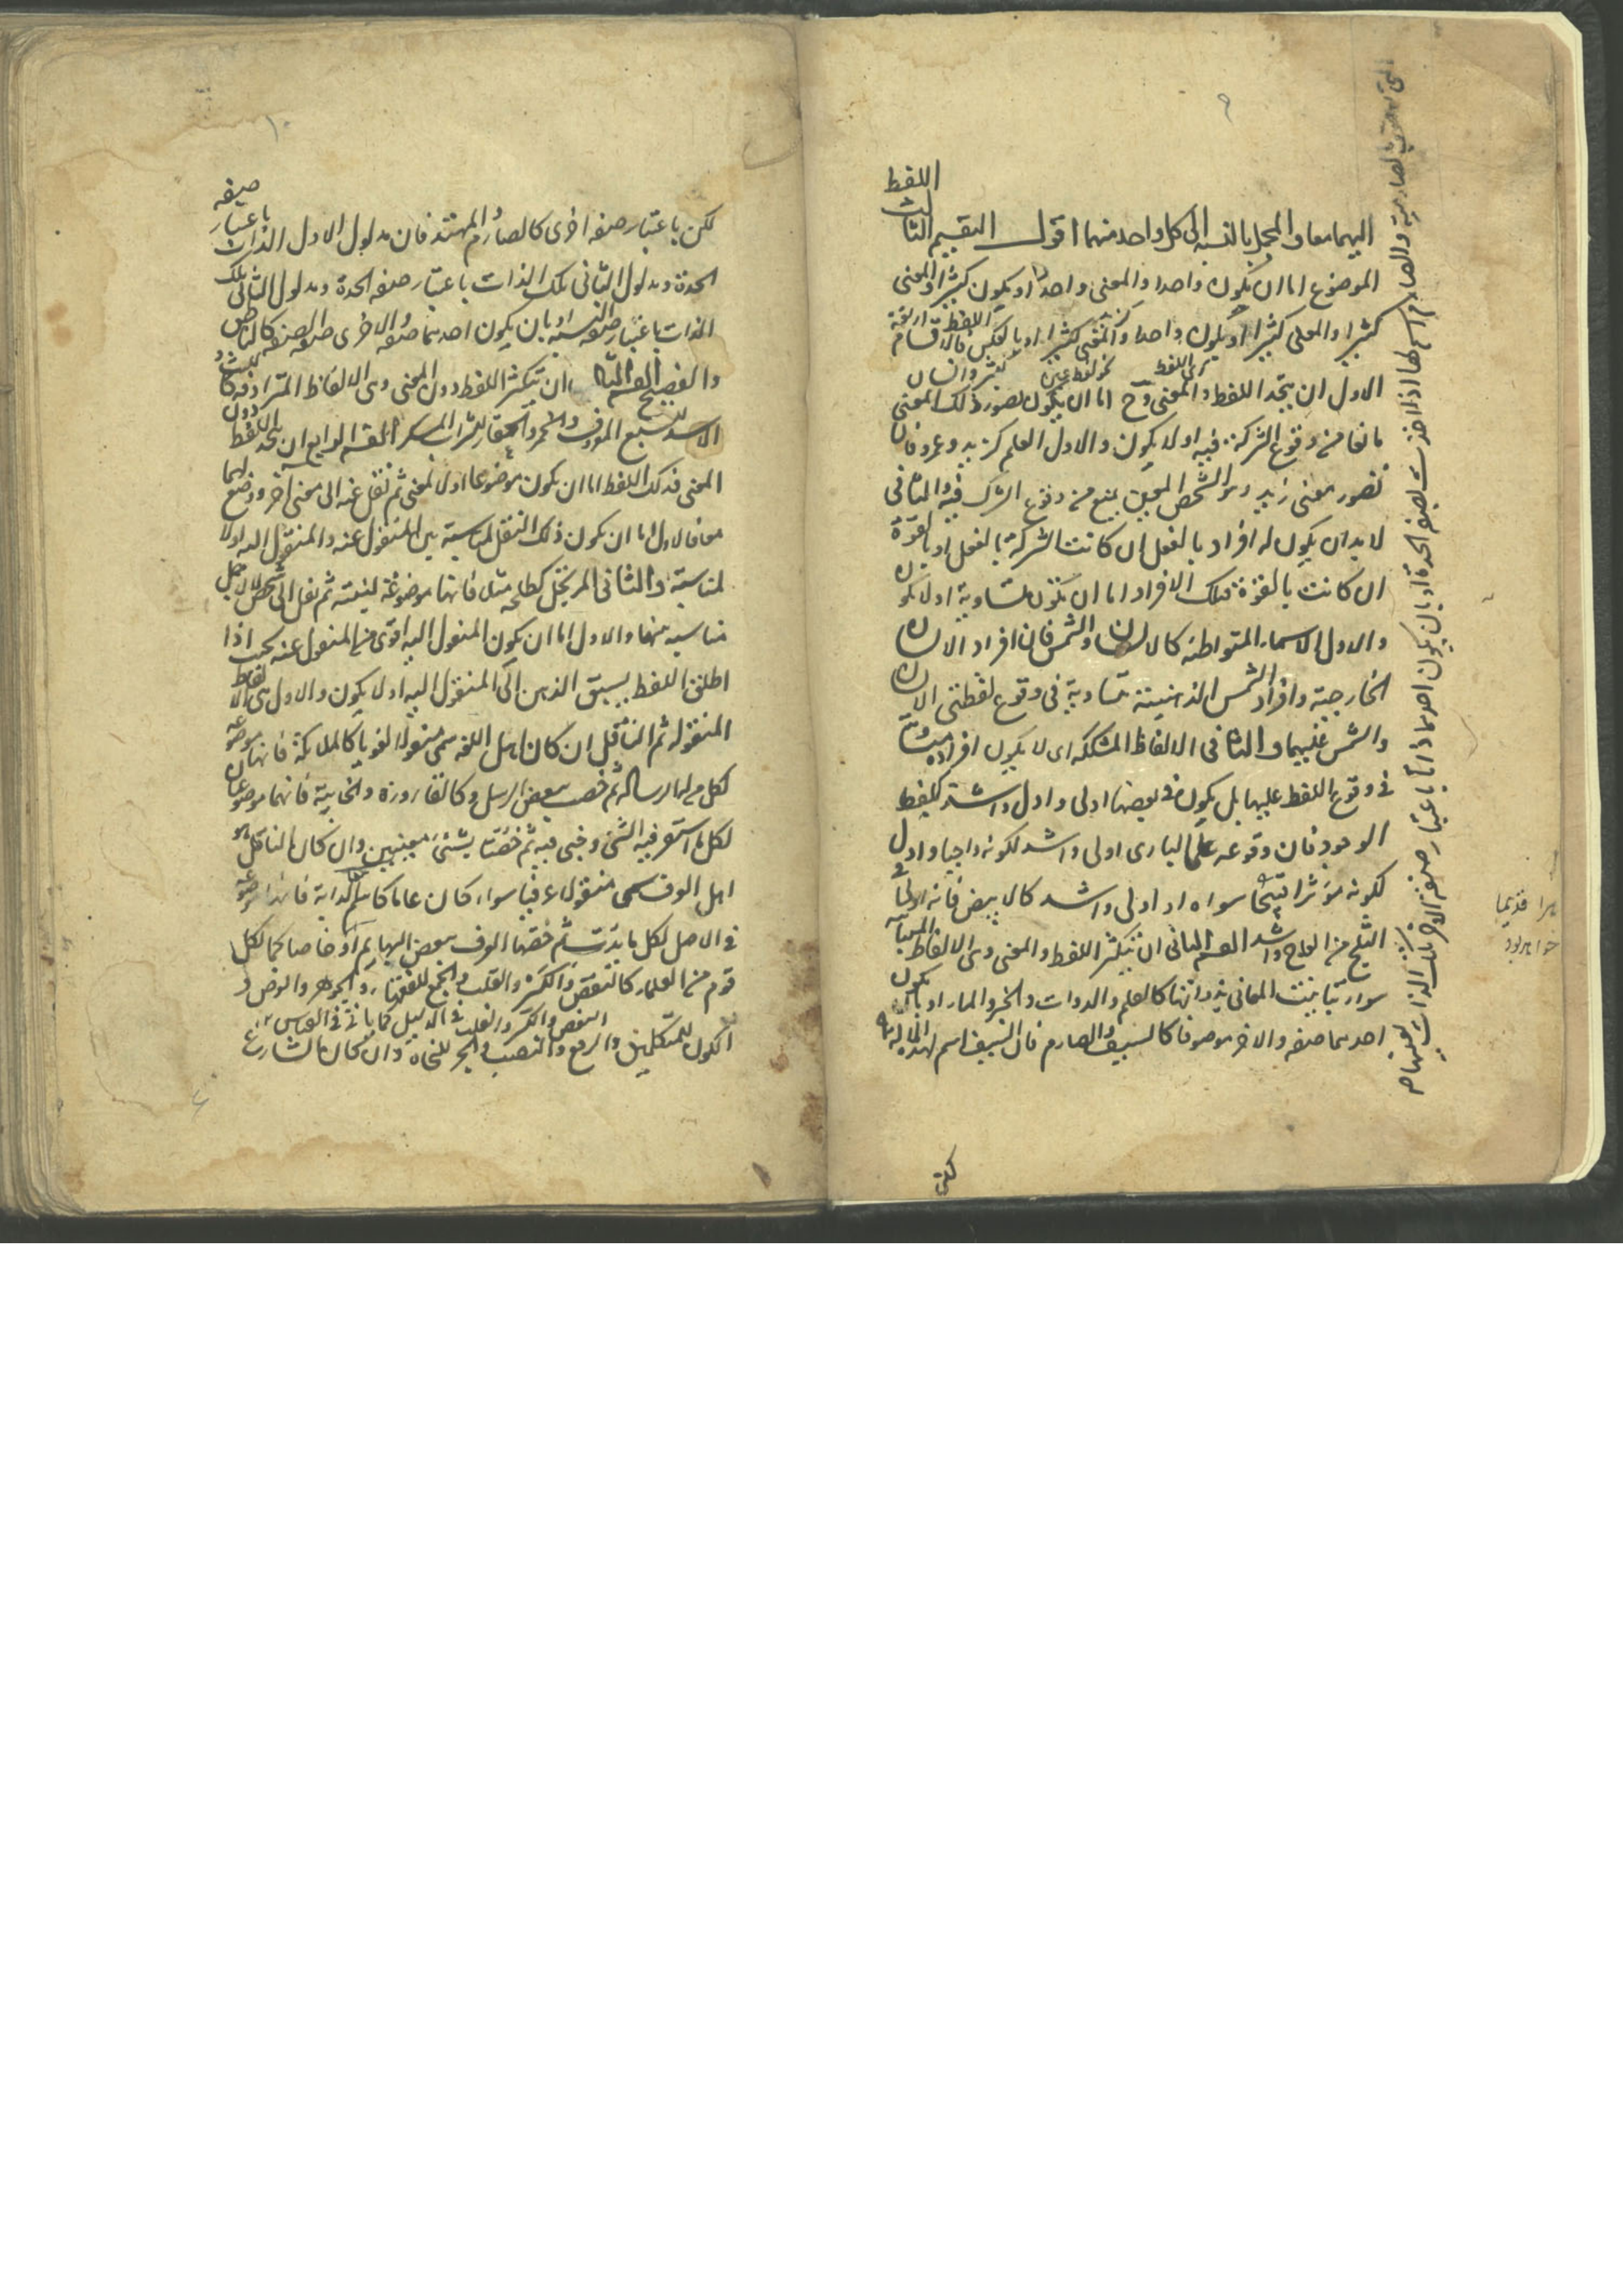 اللفظ
اليهما معا والمجمل بالنسبة الى كل واحد منهما اقول التقسيم الثالث
الموضوع اما ان يكون واحدا والمعنى واحدا او يكون كثيرا والمعنى
كثيرا والمعنى كثيرا او يكون واحدا والمعنى كثيرا او بالعكس فالاقسام اربعة
الاول ان يتحد اللفظ والمعنى وح اما ان يكون تصور ذلك المعنى
مانعا من وقوع الشركة فيه او لا يكون والاول العلم كزيد وعمرو فان
تصور معنى زيد وهو الشخص المعين يمنع من وقوع الشركة فيه والثانى
لا بد ان يكون له افراد بالفعل ان كانت الشركة بالفعل او بالقوة
ان كانت بالقوة فتلك الافراد اما ان تكون متساوية او لا يكون
والاول الاسماء المتواطئة كالانسان والشمس فان افراد الانسان
الخارجية وافراد الشمس الذهنية متساوية فى وقوع لفظتى الانسان
والشمس عليهما والثانى الالفاظ المشككة اى لا يكون افراده متساوية
فى وقوع اللفظ عليها بل يكون فى بعضها اولى واول واشد كلفظ
الوجود فان وقوعه على البارى اولى واشد لكونه واجبا واول
لكونه مؤثرا فيما سواه او اولى واشد كالابيض فانه اولى فى
الثلج من العاج واشد القسم الثانى ان يتكثر اللفظ والمعنى وهى الالفاظ المتباينة
سواء تباينت المعانى بذواتها كالعلم والدوات والخبر والمار او بان يكون
احدهما صفة والاخر موصوفا كالسيف والصارم فان السيف اسم لهذه الالة
والصارم اسم لها اذا اخذت بصفة الحدة او بان يكون احدهما دالا باعتبار صفة والاخر تلك الذات بعينها
لكن
لكن باعتبار صفة اخرى كالصارم والمهند فان مدلول الاول الذات باعتبار صفة
الحدة ومدلول الثانى تلك الذات باعتبار صفة الحدة ومدلول الثانى تلك
الذات باعتبار صفة النسبة او بان يكون احدهما صفة والاخرى صفة الصفة كالناطق
والفصيح القسم الثالث ان يتكثر اللفظ دون المعنى وهى الالفاظ المترادفة كالليث و
الاسد للسبع المعروف والخمر والعقار للشراب المسكر القسم الرابع ان يتحد اللفظ دون
المعنى فذلك اللفظ اما ان يكون موضوعا اولا لمعنى ثم نقل عنه الى معنى اخر او وضع لهما
معا فالاول اما ان يكون ذلك النقل لمناسبة بين المنقول عنه والمنقول اليه او لا
لمناسبة والثانى المرتجل كطلحة مثلا فانها موضوعة لنبتة ثم نقل الى شخص لا لاجل
مناسبة بينهما والاول اما ان يكون المنقول اليه اقوى من المنقول عنه بحيث اذا
اطلق اللفظ يسبق الذهن الى المنقول اليه او لا يكون والاول هى الالفاظ
المنقولة ثم الناقل ان كان اهل اللغة سمى منقولا لغويا كالملائكة فانها موضوعة
لكل من له الرسالة ثم خصت ببعض الرسل وكالقارورة والخابية فانهما موضوعان
لكل ما استقر فيه الشئ وخبى فيه ثم خصتا بشئ معينين وان كان الناقل هو
اهل العرف سمى منقولا عرفيا سواء كان عاما كاسم الدابة فانها موضوعة
فى الاصل لكل ما يدب ثم خصها العرف ببعض البهايم او خاصا كما لكل
قوم من العلماء كالنقض والكسر والقلب والجمع للفقهاء والجوهر والعرض و
النقض والكسر والقلب فى الدليل كما ياتى فى القياس
الكون للمتكلمين والرفع والنصب والجر للنحاة وان كان الشارع